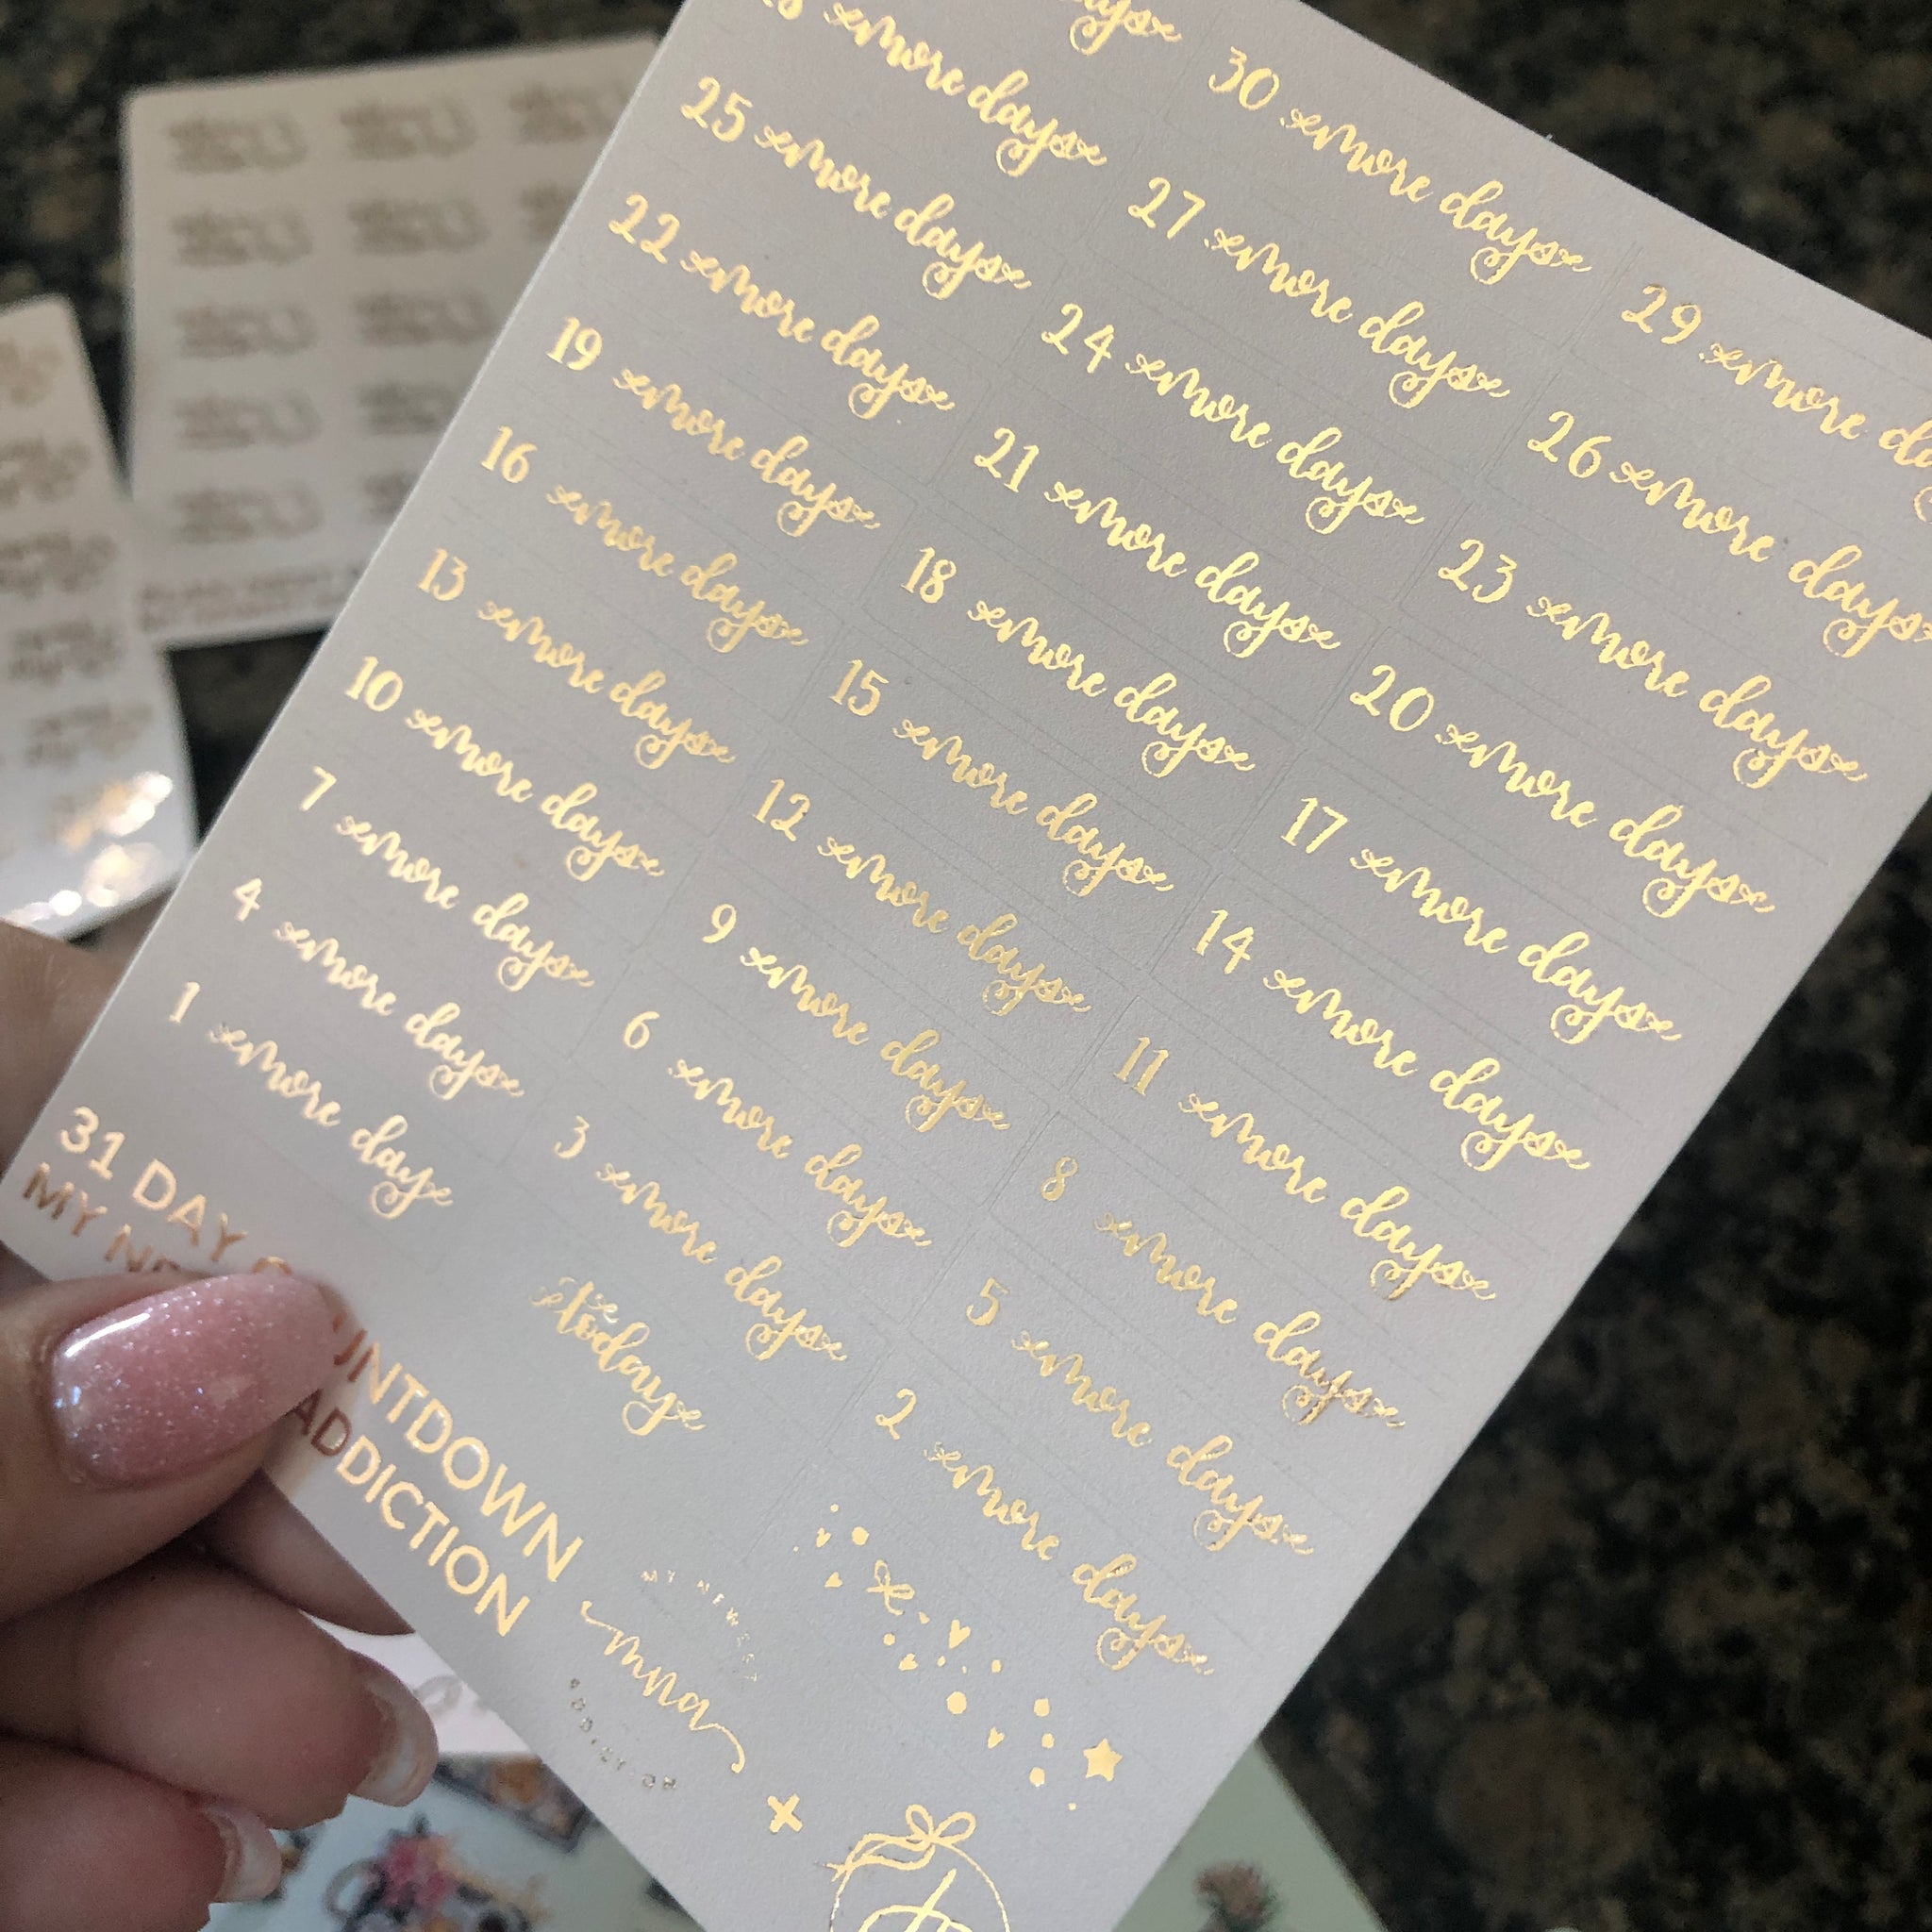 days
30 more days
29 more
more days
27 more days
26 more days
25 more days
24 more days
23 more days
22 more days
21 more days
20 more days
19 more days
18 more days
17 more days
16 more days
15 more days
14 more days
13 more days
12 more days
11 more days
10 more days
9 more days
8 more days
7 more days
6 more days
5 more days
4 more days
3 more days
2 more days
1 more day
today
31 DAY UNTDOWN
MY ADDICTION
MY NEWEST
mna
ADDICTION
+